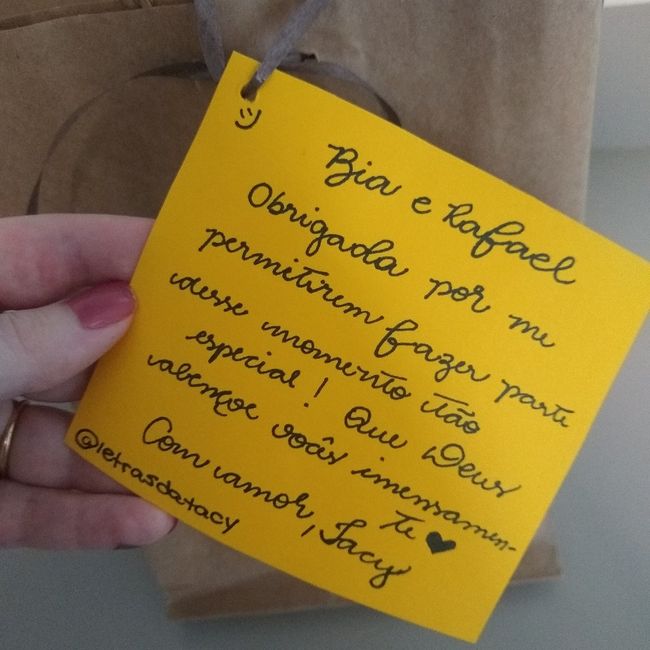 :)
Bia e Rafael
Obrigada por me
permitirem fazer parte
desse momento tão
especial! Que Deus
abençoe vocês imensamen-
te ♥
Com amor, Tacy
@letrasdatacy